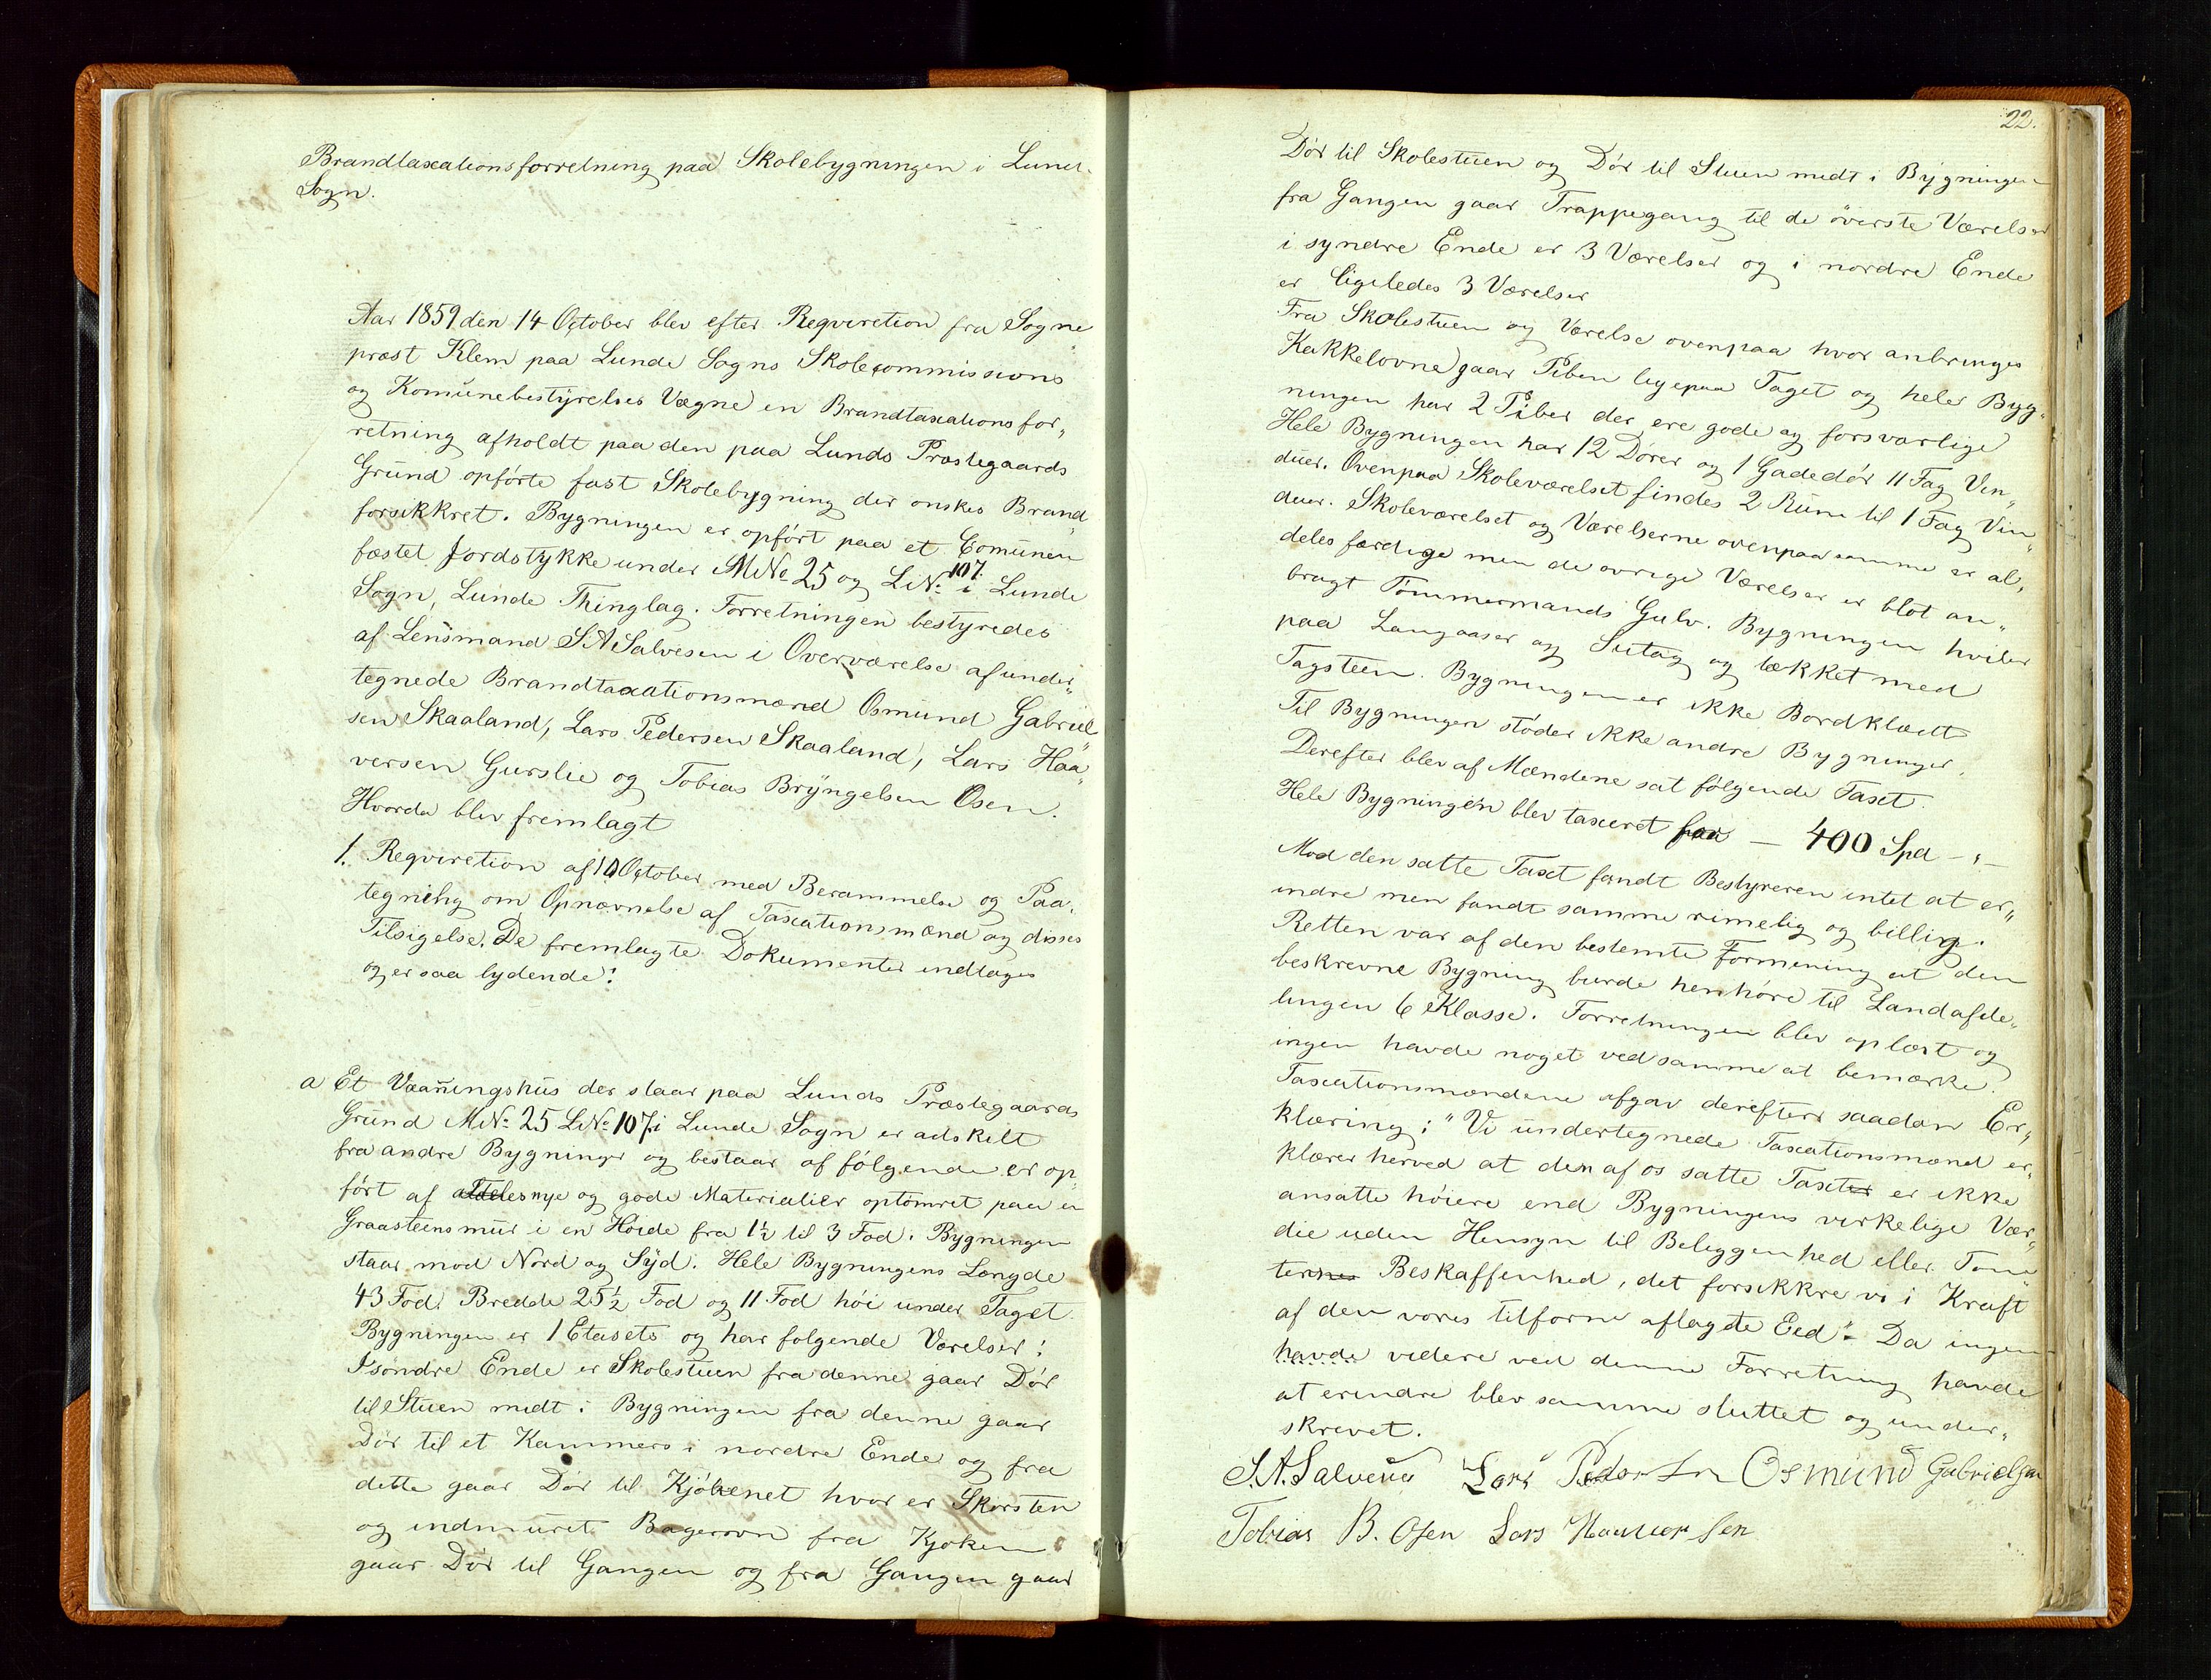 Brandtaxationsforretning paa Skolebygningen i Lund
Sogn.
Aar 1859 den 14 October blev efter Reqviretion fra Sogne
præst Klem paa Lunde Sogns Skolecommissions
og Komünebestÿrelses Vægne en Brandtaxationsfor„
retning afholdt paa den paa Lunds Præstegaards
Gründ opførte fast Skolebygning der onskes Brand„
forsikkret. Bygningen er opført paa et Comünen
fæstet Jordstykke under MNo 25 og LNo 107. i Lunde
Sogn, Lunde Thinglag. Forretningen bestyredes
af Lensmand S A Salvesen i Overværelse af under„
tegnede Brandtaxationsmænd Osmund Gabriel
sen Skaaland, Lars Pedersen Skaaland, Lars Haa„
versen Gurslie og Tobias Brÿngelsen Osen.
Hvorda blev fremlagt
1. Reqviretion af 10 October med Berammelse og Paa„
tegning om Opnævnelse af Taxationsmænd og disses
Tilsigelse. De fremlagte Dokumenter indtages
og er saa lydende:
a Et Vaaningshüs der staar paa Lunds Præstegaards
Gründ MNo 25 LNo 107. i Lunde Sogn er adskilt
fra andre Bygninger og bestaar af følgende er op„
ført af aldeles nye og gode Materialier optømret paa en
Graasteensmür i en Høide fra 1½ til 3 Fod. Bygningen
staar mod Nord og Sÿd. Hele Bygningens Længde
43 Fod. Bredde 25½ Fod og 11 Fod høi under Taget.
Bygningen er 1 Etasets og har følgende Værelser:
I søndre Ende er Skolestuen fra denne gaar Dør
til Stuen midt i Bygningen fra denne gaar
Dør til et Kammers i nordre Ende og fra
dette gaar Dør til Kjøkenet hvor er Skorsten
og indmüret Bagerovn fra Kjøken
gaar Dør til Gangen og fra Gangen gaar
22.
Dør til Skolestuen og Dør til Stuen midt i Bÿgningen
fra Gangen gaar Trappegang til de øverste Værelser
i syndre Ende er 3 Værelser og i nordre Ende
er ligeledes 3 Værelser
Fra Skolestuen og Værelse ovenpaa hvor anbringes
Kakkelovne gaar Piben ligepaa Taget og heler Byg„
ningen har 2 Piber der ere gode og forsvarlige
Hele Bygningen har 12 Dører og 1 Gadedør 11 Fag Vin„
düer. Ovenpaa Skoleværelset findes 2 Rüm til 1 Fag Vin„
duer. Skoleværelset og Værelserne ovenpaa samme er al„
deles færdige men de øvrige Værelser er blot an„
bragt Tømmermands Gulv. Bygningen hviler
paa Langaaser og Sutag og tækket med
Tagsteen. Bygningen er ikke Bordklædt
Til Bygningen støder ikke andre Bygninger.
Derefter blev af Mændene sat følgende Taxt.
Hele Bygningen blev taxeret for — 400 Spd - „ -
Mod den satte Taxt fandt Bestyreren intet at er„
indre men fandt samme rimelig og billig.
Retten var af den bestemte Formening at den
beskrevne Bygning burde henhøre til Landafde„
lingen 6 Klasse. Forretningen blev oplæst og
ingen havde noget ved samme at bemærke.
Taxationsmændene afgav derefter saadan Er„
klæring: "Vi ündertegnede Taxationsmænd er„
klærer herved at den af os satte Taxter er ikke
ansatte høiere end Bygningens virkelige Vær„
die uden Hensyn til Beliggenhed eller Tom„
ternes Beskaffenhed, det forsikkre vi i Kraft
af den vores tilforne aflagde Eed". Da ingen
havde videre ved denne Forretning havde
at erindre blev samme sluttet og under„
skrevet.
S. A. Salvesen Lars Pedersen Osmünd Gabrielsen
Tobias B. Osen Lars Haaversen